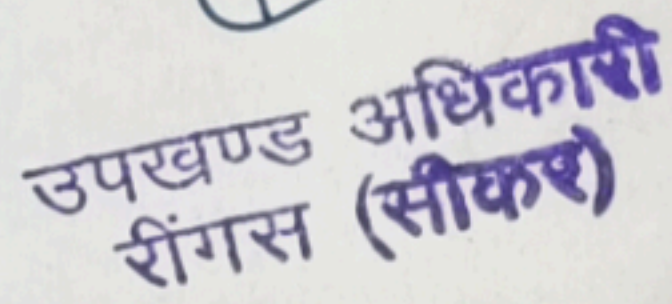 उपखण्ड अधिकारी
रींगस (सीकर)